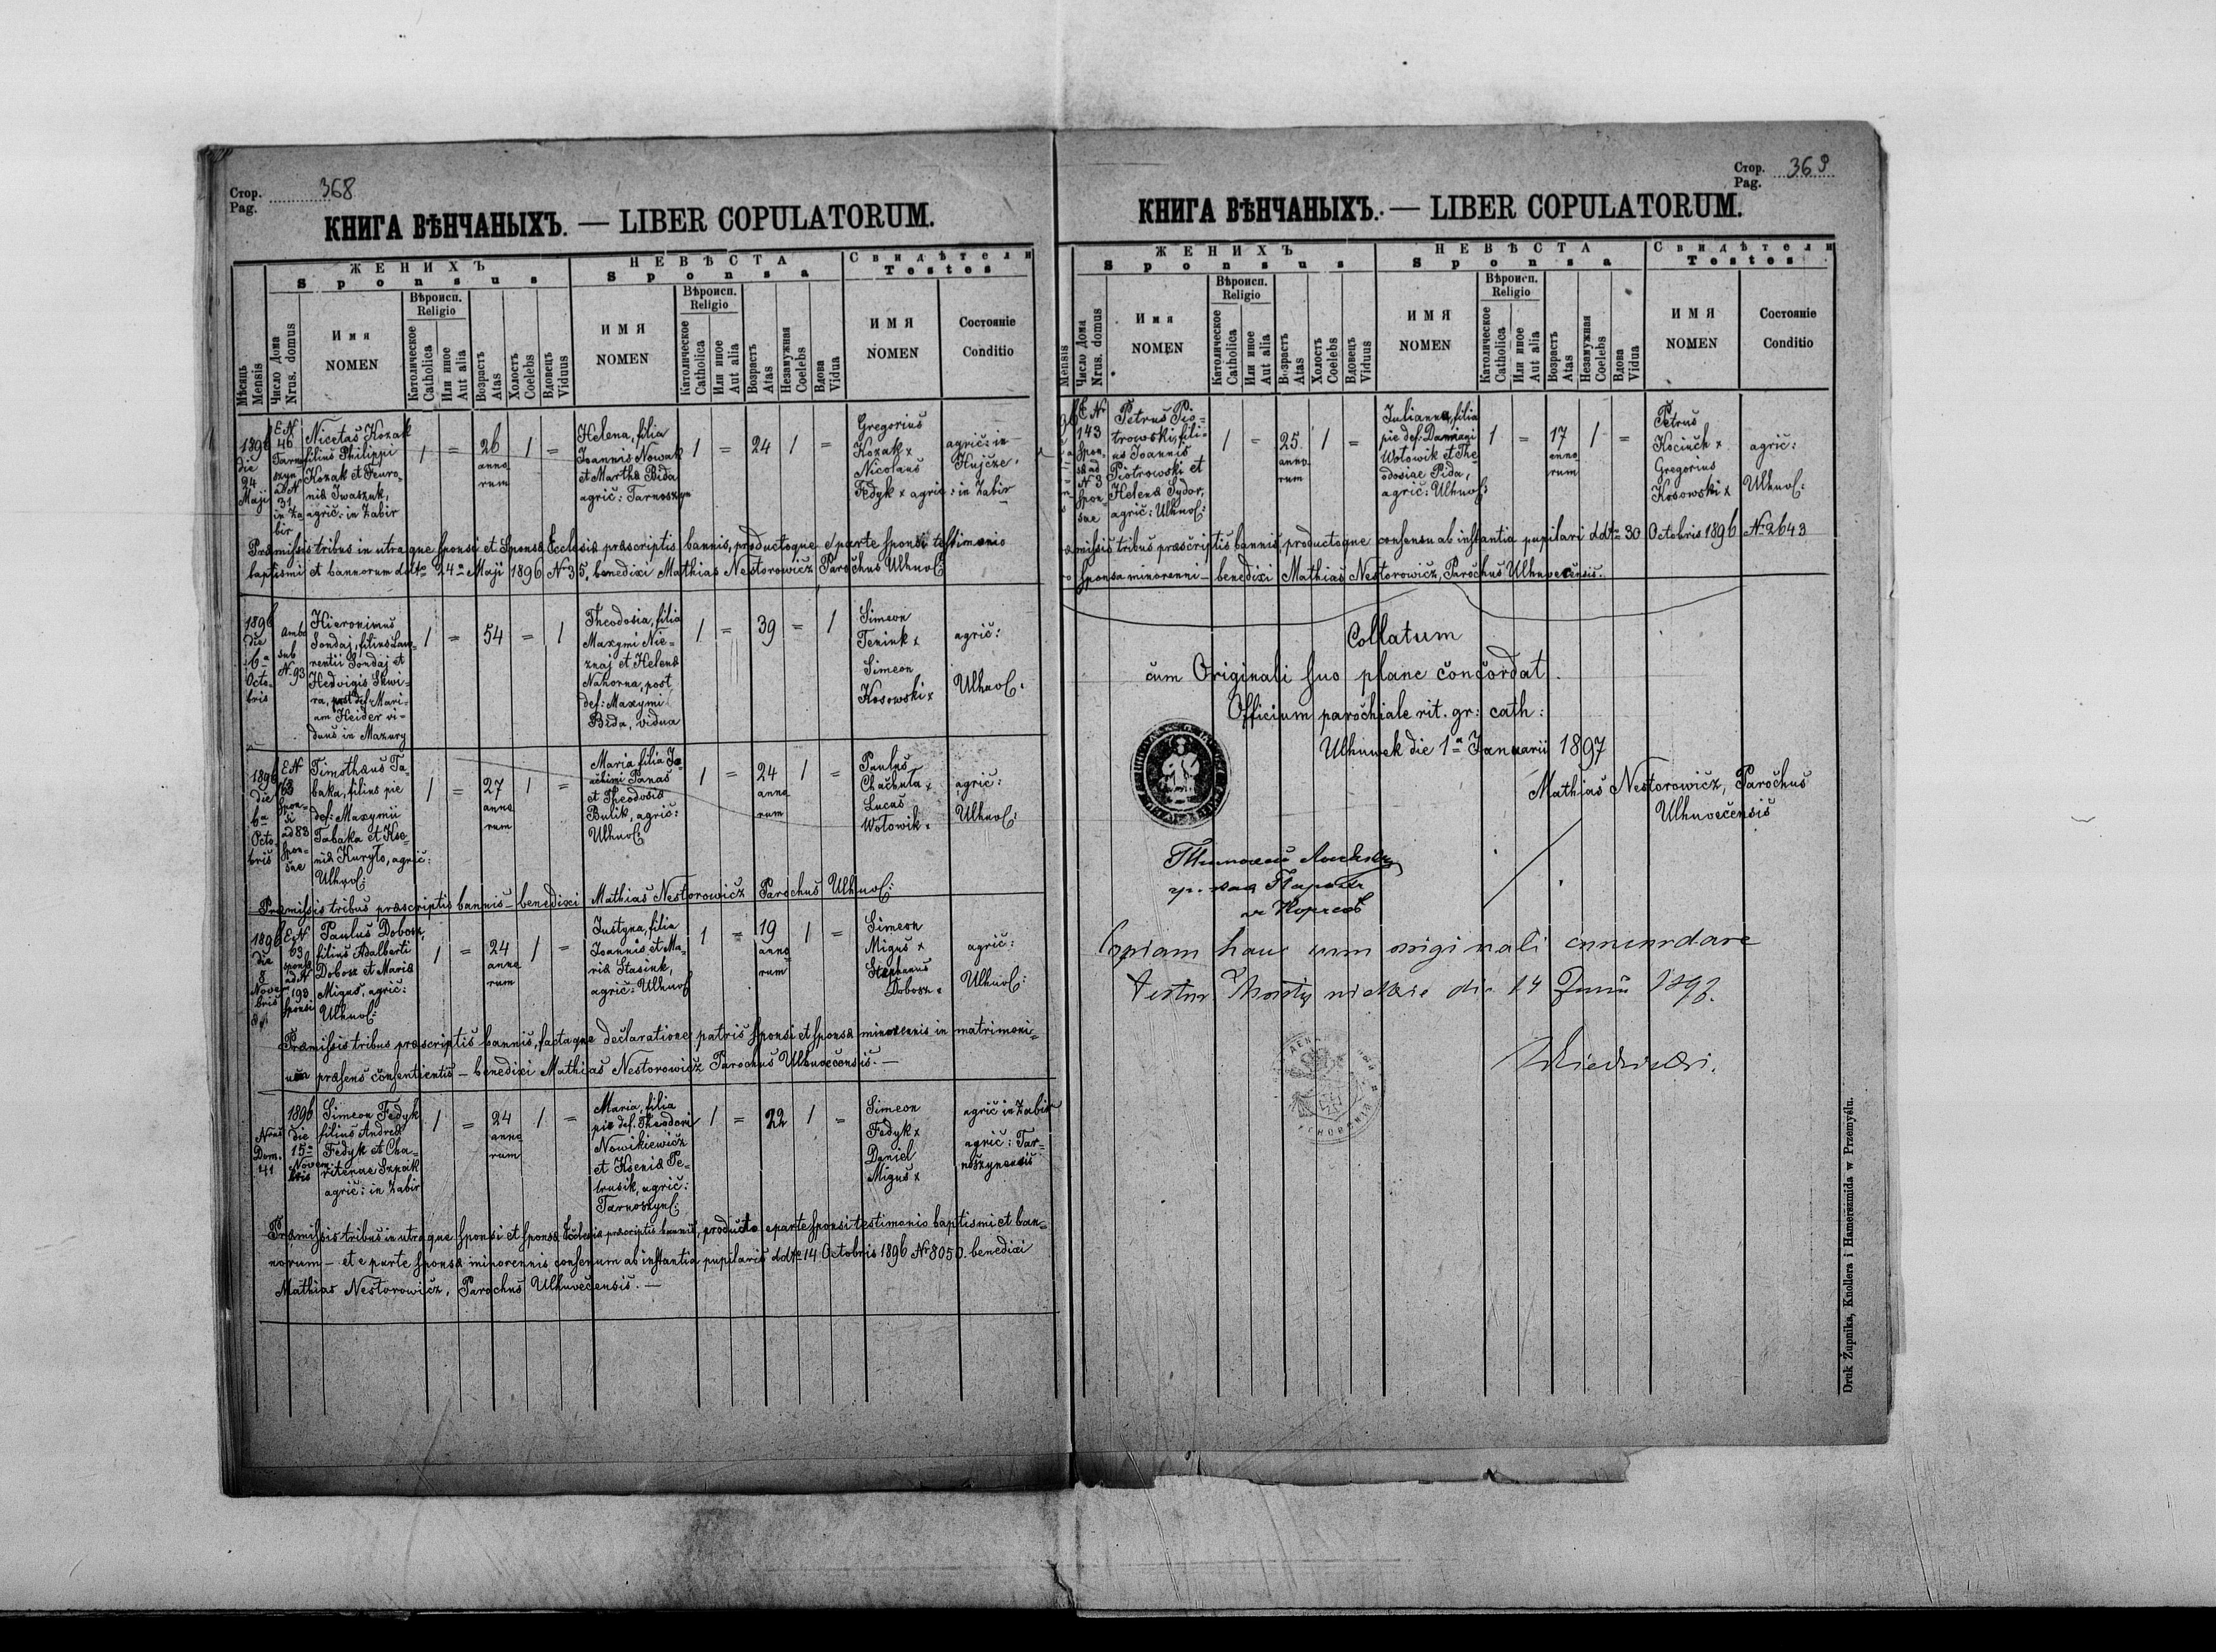 Стор.
Pag. 368
КНИГА ВѢНЧАНЫХЪ. — LIBER COPULATORUM.
Мѣсяць
Mensis
Число Дома
Nrus. domus
ЖЕНИХЪ
Sponsus
Имя
NOMEN
Вѣроисп.
Religio
Католическое
Catholica
Или иное
Aut alia
Возрастъ
Atas
Холостъ
Coelebs
Вдовецъ
Viduus
НЕВѢСТА
Sponsa
ИМЯ
NOMEN
Вѣроисп.
Religio
Католическое
Catholica
Или иное
Aut alia
Возрастъ
Atas
Незамужная
Coelebs
Вдова
Vidua
Свидѣтели
Testes
ИМЯ
NOMEN
Состояніе
Conditio
1896
die
24
Maji
E N
46
Tarno
szyn
ad N
31
in Za
bir
Nicetas Kozak
filius Philippi
Kozak et Feuro-
nia Iwaszuk,
agric: in Zabir
1 = 26 1 =
anno
rum
Helena, filia
Joannis Nowak
et Martha Bida
agric: Tarnoszyn
1 = 24 1 =
Gregorius
Kozak x
Nicolaus
Fedyk x agric: in Zabir
agric: in
Hujcze.
Præmissis tribus in utraque Sponsi et Sponsa Ecclesia præscriptis bannis, productoque e parte sponsi testimonio
baptismi et bannorum ddto 24a Maji 1896 No 35, benedixi Mathias Nestorowicz Parochus Ulhnov:
1896
die
6a
Octo-
bris
Ambo
sub
No 93
Hieronimus
Sondaj, filius Lau-
rentii Sondaj et
Hedvigis Skwi-
ra, post def Mari-
am Heider vi-
duus in Mazury
1 = 54 = 1
Theodosia, filia
Maxymi Nie-
znaj et Helena
Nahorna, post
def: Maxymi
Bida, vidua
1 = 39 = 1
Simeon
Tenink x
Simeon
Kosowski x
agric:
Ulhnov:
1896
die
6a
Octo-
bris
E N
163
Spon-
si
ad 83
Spon-
sae
Timothæus Ta-
baka, filius pie
def: Maxymii
Tabaka et Kse-
nia Kuryło, agric:
Ulhnov:
1 = 27 1 =
anno
rum
Maria filia Jo-
achimi Panas
et Theodosia
Bulik, agric:
Ulhnov:
1 = 24 1 =
anno
rum
Paulus
Chachuta x
Lucas
Wołowik x
agric:
Ulhnov:
Præmissis tribus præscriptis bannis — benedixi Mathias Nestorowicz Parochus Ulhnov:
1896
die
8
Novem
bris
E N
63
sponsa
ad N
193
Sponsi
Paulus Dobosz,
filius Adalberti
Dobosz et Maria
Migus, agric:
Ulhnov:
1 = 24 1 =
anno
rum
Justyna, filia
Joannis et Ma-
ria Stasiuk,
agric: Ulhnov
1 = 19 1 =
anno
rum
Simeon
Migus x
Stephanus
Dobosz x
agric:
Ulhnov:
Præmissis tribus præscriptis bannis, factaque declaratione patris sponsi et sponsa minorennis in matrimoni-
um præsens consentientis — benedixi Mathias Nestorowicz Parochus Ulhuvecensis. —
Nrus
Dom.
41
1896
die
15a
Novem
bris
Simeon Fedyk
filius Andrea
Fedyk et Cha-
ritenae Szpak
agric: in Zabir
1 = 24 1 =
anno
rum
Maria, filia
pie def. Theodori
Nowikiewicz
et Ksenia Pe-
trusik, agric:
Tarnoszyn:
1 = 22 1 =
Simeon
Fedyk x
Daniel
Migus x
agric in Zabir
agric: Tar-
noszynensis
Præmissis tribus in utraque Sponsi et Sponsa Ecclesia præscriptis bannis, producto e parte sponsi testimonio baptismi et ban-
norum — et e parte sponsa minorennis consensum ab instantia pupilaris ddto 14 Octobris 1896 No 8050. benedixi
Mathias Nestorowicz, Parochus Ulhuvecensis. —
Стор.
Pag. 369
КНИГА ВѢНЧАНЫХЪ. — LIBER COPULATORUM.
Mensis
Число Дома
Nrus. domus
ЖЕНИХЪ
Sponsus
Имя
NOMEN
Вѣроисп.
Religio
Католическое
Catholica
Или иное
Aut alia
Возрастъ
Atas
Холостъ
Coelebs
Вдовецъ
Viduus
НЕВѢСТА
Sponsa
ИМЯ
NOMEN
Вѣроисп.
Religio
Католическое
Catholica
Или иное
Aut alia
Возрастъ
Atas
Незамужная
Coelebs
Вдова
Vidua
Свидѣтели
Testes
ИМЯ
NOMEN
Состояніе
Conditio
E No
143
Spon.
sa ad
N 3
Spon-
sae
Petrus Pio-
trowski, fili-
us Joannis
Piotrowski et
Helena Sydor,
agric: Ulhnov:
1 = 25 1 =
anno
rum
Julianna, filia
pie def: Damiani
Wołowik et The-
odosiae Pida,
agric: Ulhnov:
1 = 17 1 =
anno
rum
Petrus
Kociuch x
Gregorius
Kosowski x
agric:
Ulhnov:
æmissis tribus præscriptis bannis, productoque consensu ab instantia pupilari ddto 30 Octobris 1896 No 2643
sponsa minorenni — benedixi Mathias Nestorowicz, Parochus Ulhuvecensis.
Collatum
cum Originali suo plane concordat.
Officium parochiale rit. gr: cath:
Ulhuwek die 1a Januarii 1897
Mathias Nestorowicz, Parochus
Ulhuvecensis
Copiam hanc cum originali concordare
testor
die 14 Junii 1897.
Druk Żupnika, Knollera i Hamerszmida w Przemyślu.